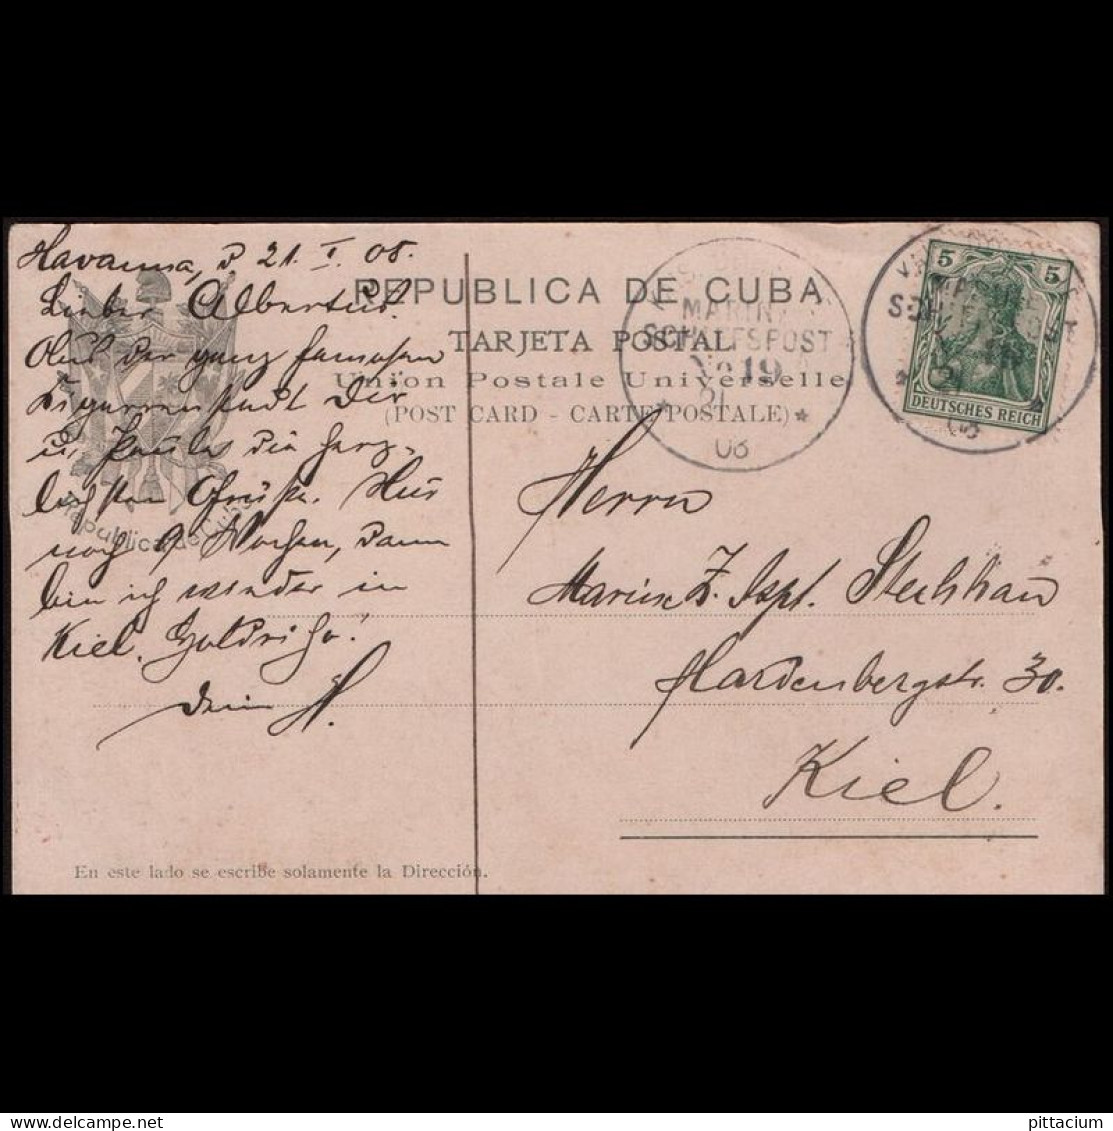 Havanna, d 21. I. 08.
Lieber Albertus!
Aus der ganz famosen
Zigarrenstadt Dir
u. Paula die herz-
lichsten Grüße. Nur
noch 9 Wochen, dann
bin ich wieder in
Kiel.
Dein H.
Republica de Cuba
REPUBLICA DE CUBA
TARJETA POSTAL
Union Postale Universelle
(POST CARD - CARTE POSTALE)
MARINE
SCHIFFSPOST
No 19
21
08
5 5
DEUTSCHES REICH
Herrn
Marine Z. Aspt. Stechhan
Hardenbergstr. 30.
Kiel.
En este lado se escribe solamente la Dirección.
pittacium